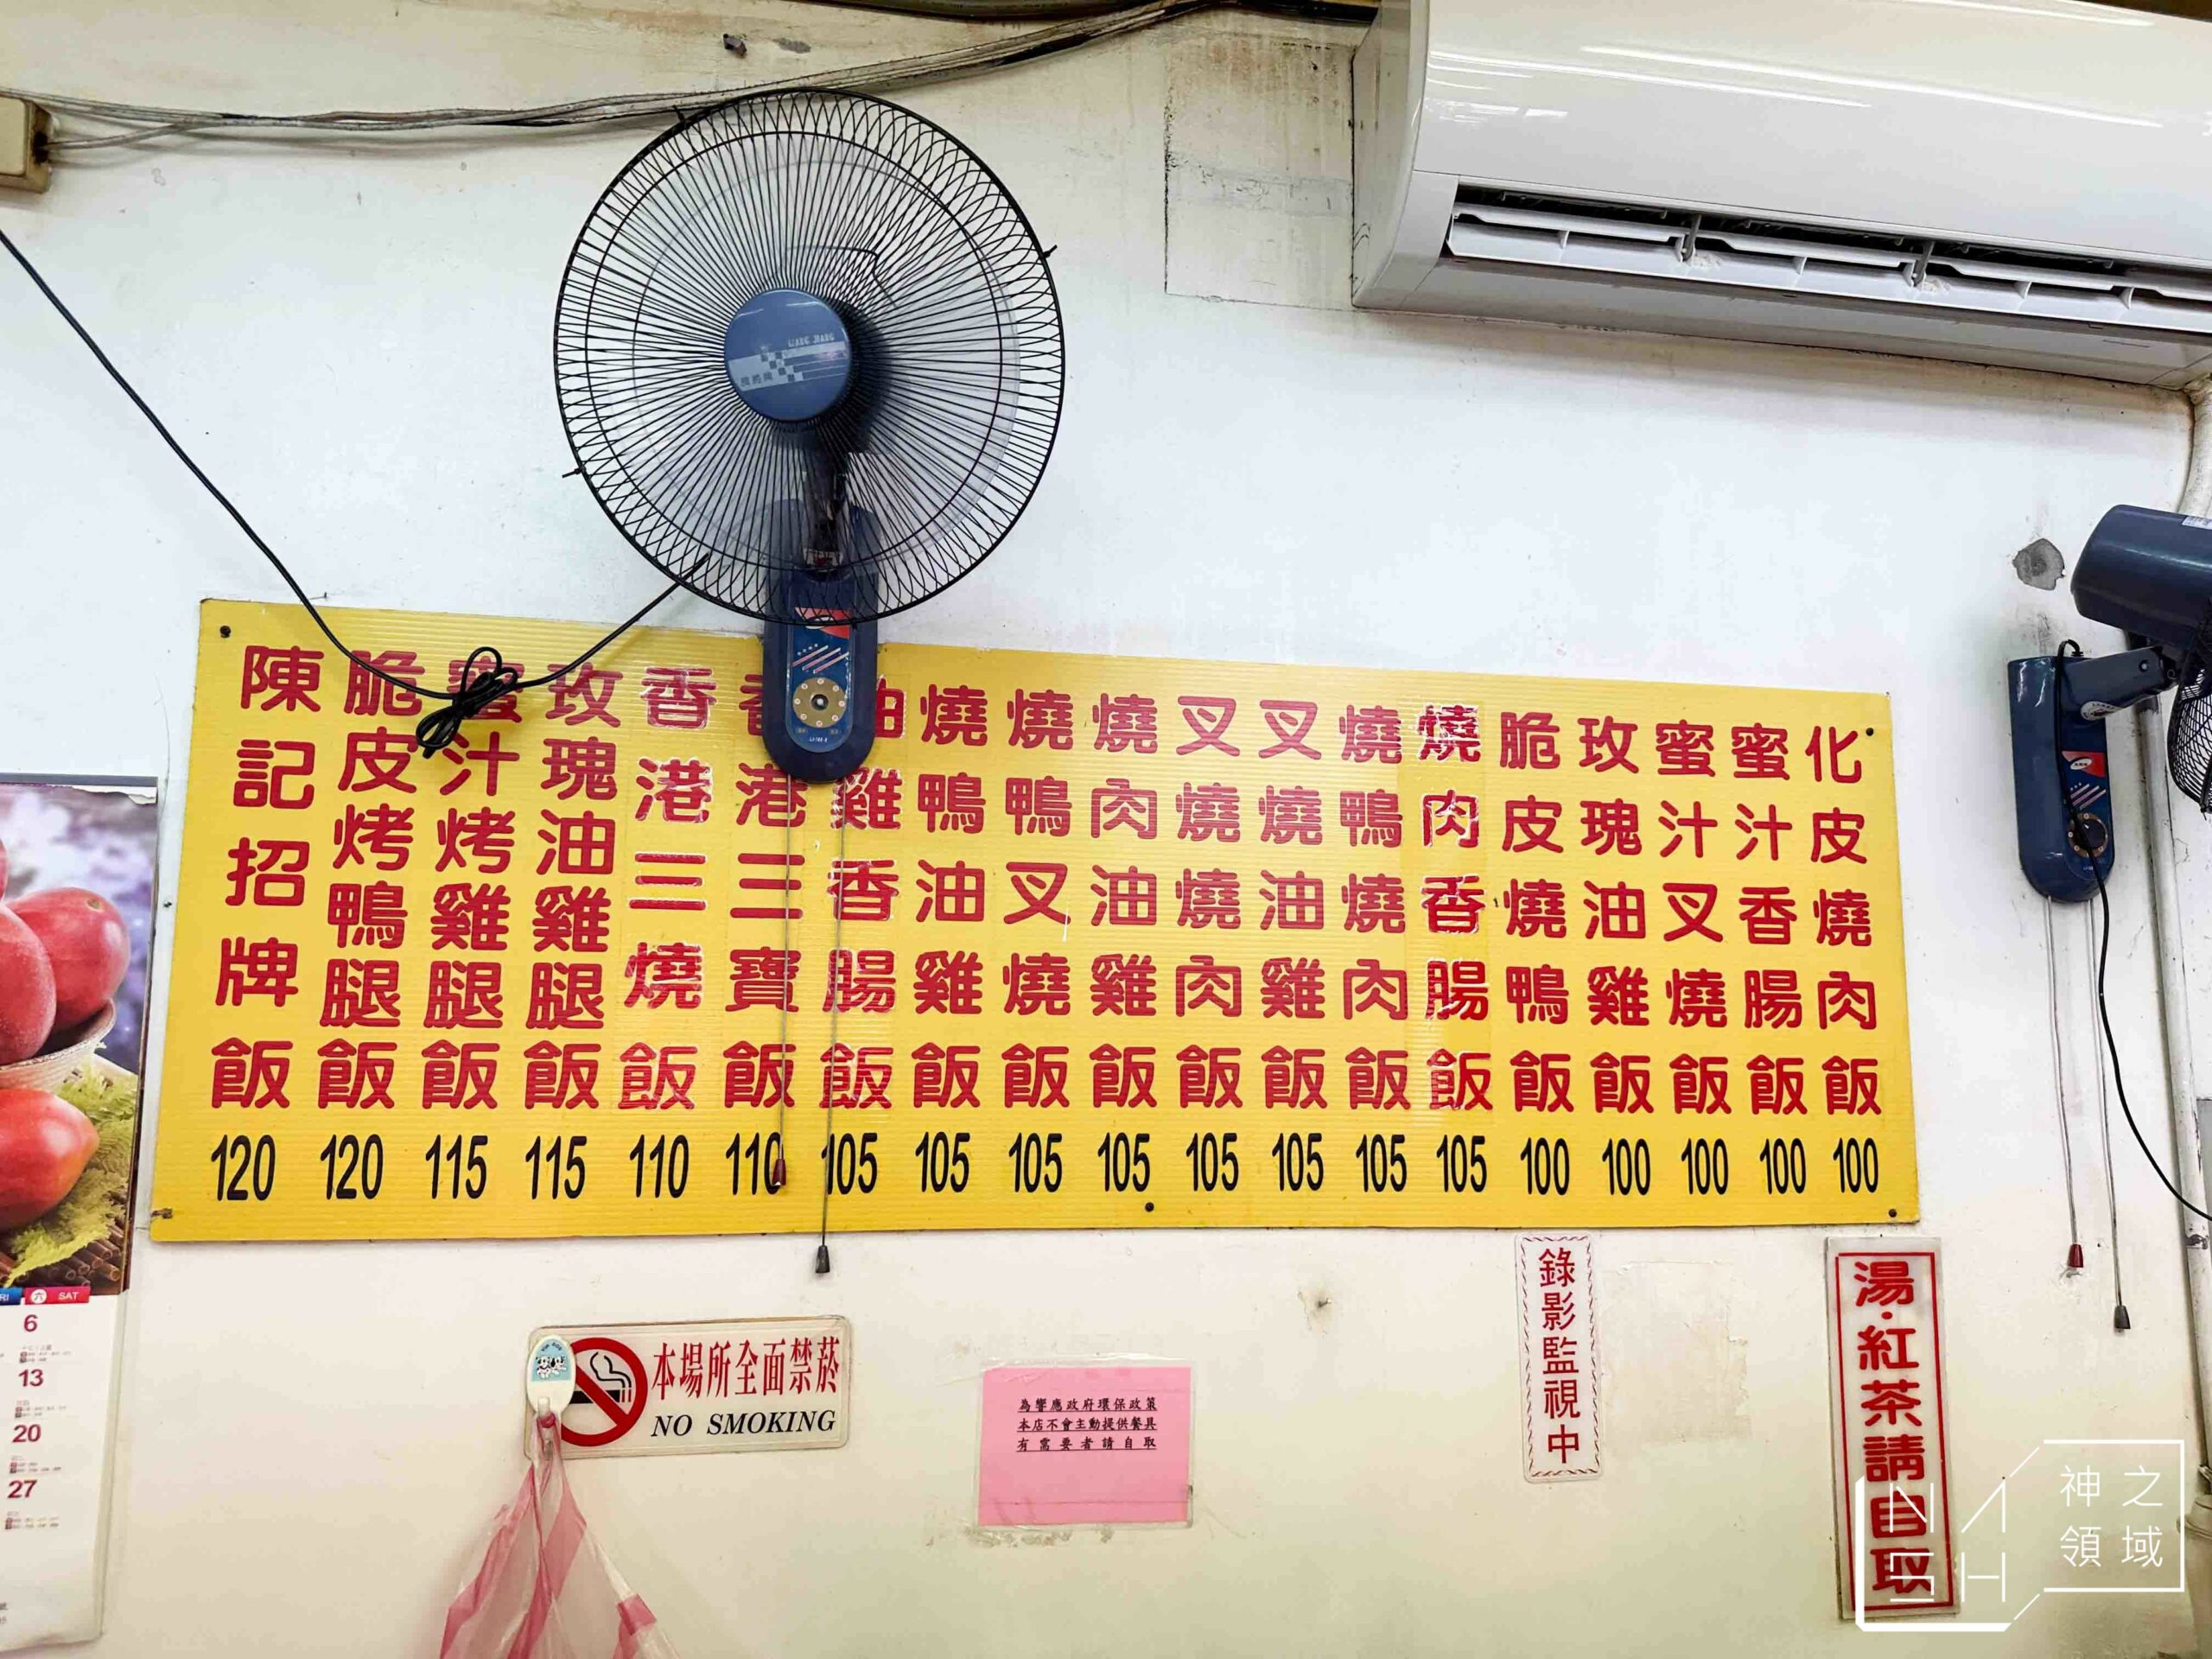 陳記招牌飯 120
脆皮烤鴨腿飯 120
蜜汁烤雞腿飯 115
玫瑰油雞腿飯 115
香港三燒飯 110
香港三寶飯 110
油雞香腸飯 105
燒鴨油雞飯 105
燒鴨叉燒飯 105
燒肉油雞飯 105
叉燒燒肉飯 105
叉燒油雞飯 105
燒鴨燒肉飯 105
燒肉香腸飯 105
脆皮燒鴨飯 100
玫瑰油雞飯 100
蜜汁叉燒飯 100
蜜汁香腸飯 100
化皮燒肉飯 100
本場所全面禁菸
NO SMOKING
為響應政府環保政策
本店不會主動提供餐具
有需要者請自取
錄影監視中
湯·紅茶請自取
六 SAT
6
13
20
27
NASH
神之
領域